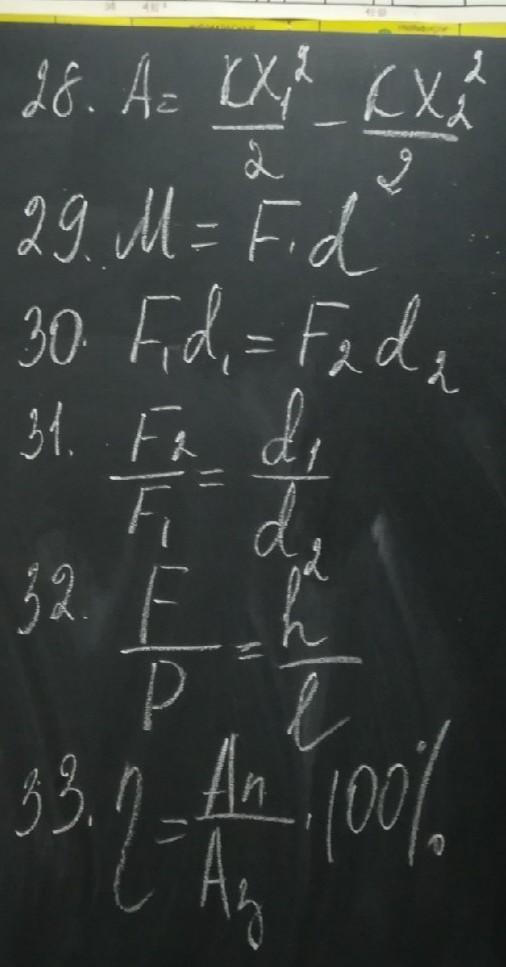 28. A = kx₁²/2 - kx₂²/2
29. M = F · d
30. F₁d₁ = F₂d₂
31. F₂/F₁ = d₁/d₂
32. F/P = h/l
33. η = Aп/Aз · 100%